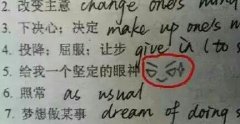 2. 改变主意 change one's min
3. 下决心；决定 make up one's m
4. 投降；屈服；让步 give in (to s
5. 给我一个坚定的眼神
6. 照常 as usual
7. 梦想做某事 dream of doing s